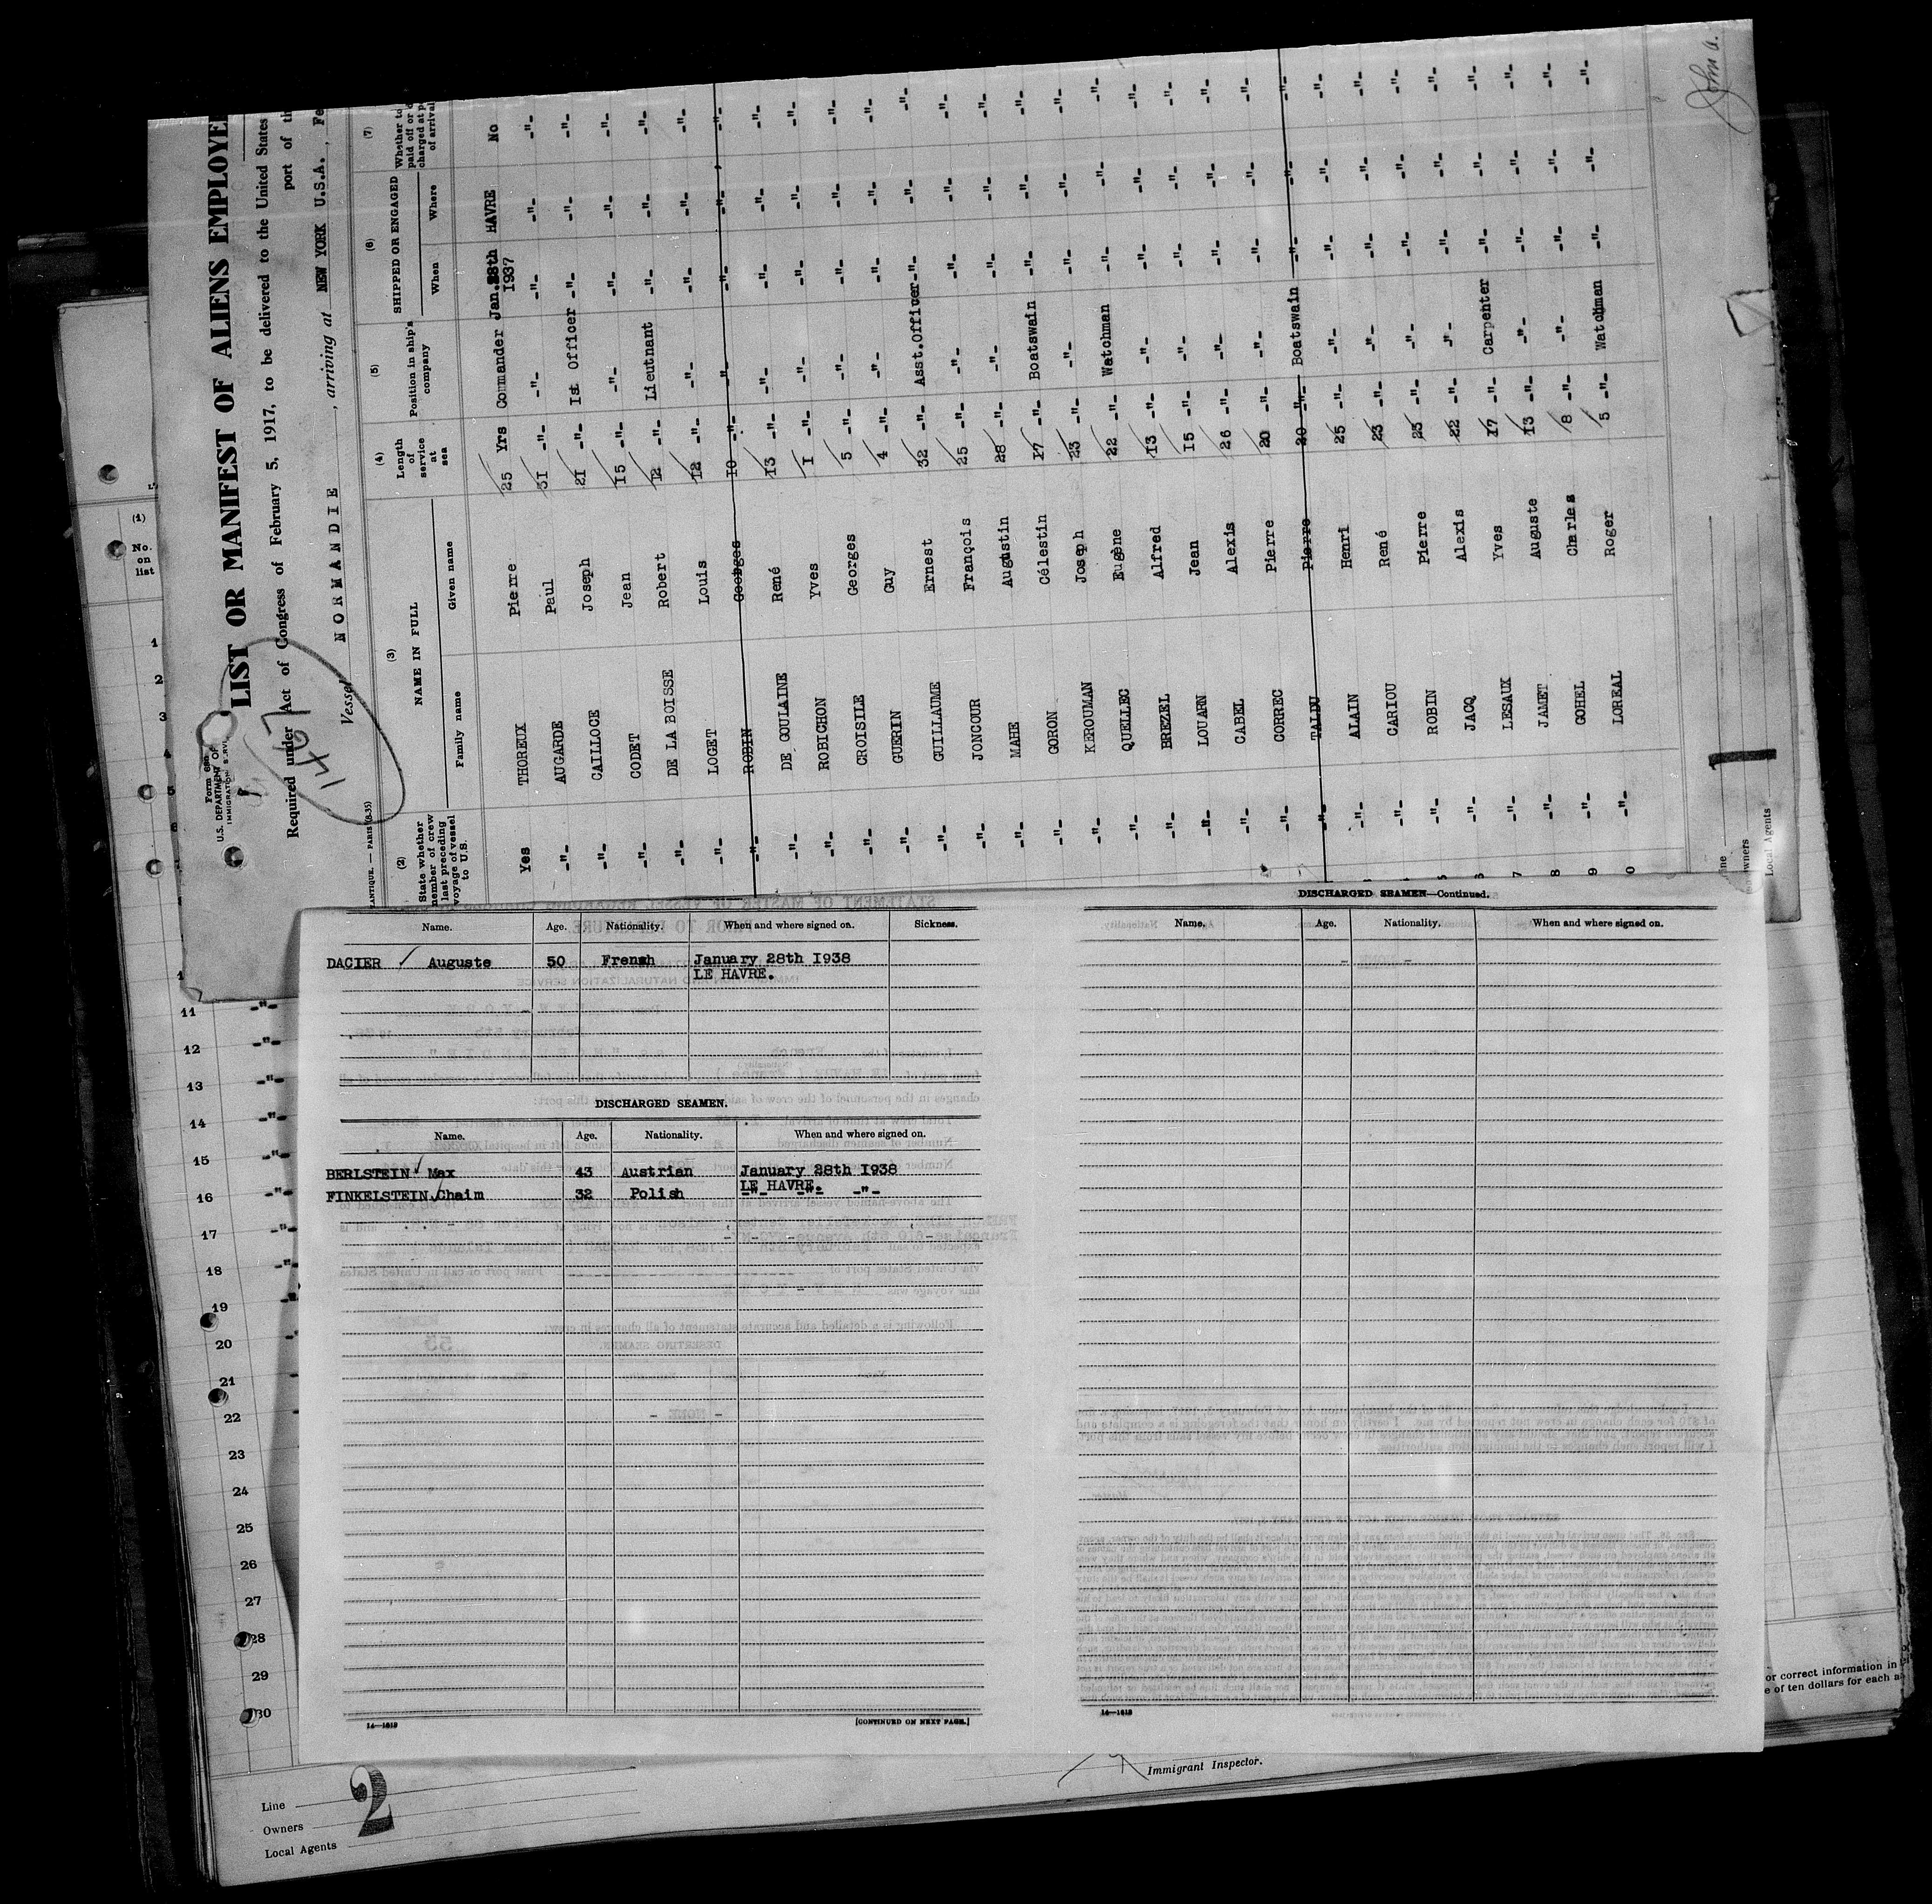 Form 680
U.S. DEPARTMENT OF
IMMIGRATION SERVI
LIST OR MANIFEST OF ALIENS EMPLOYE
Required under Act of Congress of February 5, 1917, to be delivered to the United States
port of th
1467
Vessel NORMANDIE, arriving at NEW YORK U.S.A., Fe
LANTIQUE. — PARIS (8-35)
(2) (3) (4) (5) (6) (7)
State whether member of crew last preceding voyage of vessel to U.S.
NAME IN FULL
Family name Given name
Length of service at sea
Position in ship's company
SHIPPED OR ENGAGED
When Where
Whether to
paid off or d
charged at p
of arrival
Yes THOREUX Pierre 25 Yrs Commander Jan.28th 1937 HAVRE No
-"- AUGARDE Paul 31 -"- -"- -"- -"- -"-
-"- CAILLOCE Joseph 21 -"- Ist Officer -"- -"- -"-
-"- CODET Jean 15 -"- -"- -"- -"- -"-
-"- DE LA BOISSE Robert 12 -"- Lieutnant -"- -"- -"-
-"- LOGET Louis 12 -"- -"- -"- -"- -"-
-"- ROBIN Georges 10 -"- -"- -"- -"- -"-
-"- DE GOULAINE René 13 -"- -"- -"- -"- -"-
-"- ROBICHON Yves 1 -"- -"- -"- -"- -"-
-"- CROISILE Georges 5 -"- -"- -"- -"- -"-
-"- GUERIN Guy 4 -"- -"- -"- -"- -"-
-"- GUILLAUME Ernest 32 -"- Asst.Officer -"- -"- -"-
-"- JONCOUR François 25 -"- -"- -"- -"- -"-
-"- MAHE Augustin 28 -"- -"- -"- -"- -"-
-"- GORON Célestin 17 -"- Boatswain -"- -"- -"-
-"- KEROUMAN Joseph 23 -"- -"- -"- -"- -"-
-"- QUELLEC Eugène 22 -"- Watchman -"- -"- -"-
-"- BREZEL Alfred 13 -"- -"- -"- -"- -"-
-"- LOUARN Jean 15 -"- -"- -"- -"- -"-
-"- CABEL Alexis 26 -"- -"- -"- -"- -"-
-"- CORREC Pierre 20 -"- -"- -"- -"- -"-
-"- TALDU Pierre 20 -"- Boatswain -"- -"- -"-
-"- ALAIN Henri 25 -"- -"- -"- -"- -"-
-"- CARIOU René 23 -"- -"- -"- -"- -"-
-"- ROBIN Pierre 23 -"- -"- -"- -"- -"-
-"- JACQ Alexis 22 -"- -"- -"- -"- -"-
7 -"- LESAUX Yves 17 -"- Carpenter -"- -"- -"-
8 -"- JAMET Auguste 13 -"- -"- -"- -"- -"-
9 -"- GOHEL Charles 8 -"- -"- -"- -"- -"-
0 -"- LOREAL Roger 5 -"- Watchman -"- -"- -"-
John A.
ne
owners
Local Agents
(1)
No. on list
1
2
3
4
5
11 -"-
12 -"-
13 -"-
14 -"-
15 -"-
16 -"-
17 -"-
18 -"-
19 -"-
20
21
22
23
24
25
26
27
28
29
30
Name. Age. Nationality. When and where signed on. Sickness.
DACIER Auguste 50 French January 28th 1938
LE HAVRE.
DISCHARGED SEAMEN.
Name. Age. Nationality. When and where signed on.
BERLSTEIN Max 43 Austrian January 28th 1938
LE HAVRE.
FINKELSTEIN Chaim 32 Polish -"- -"- -"-
14—1619 [CONTINUED ON NEXT PAGE.]
DISCHARGED SEAMEN—Continued.
Name. Age. Nationality. When and where signed on.
14—1619
or correct information in
e of ten dollars for each a
Immigrant Inspector.
Line
Owners
Local Agents
2